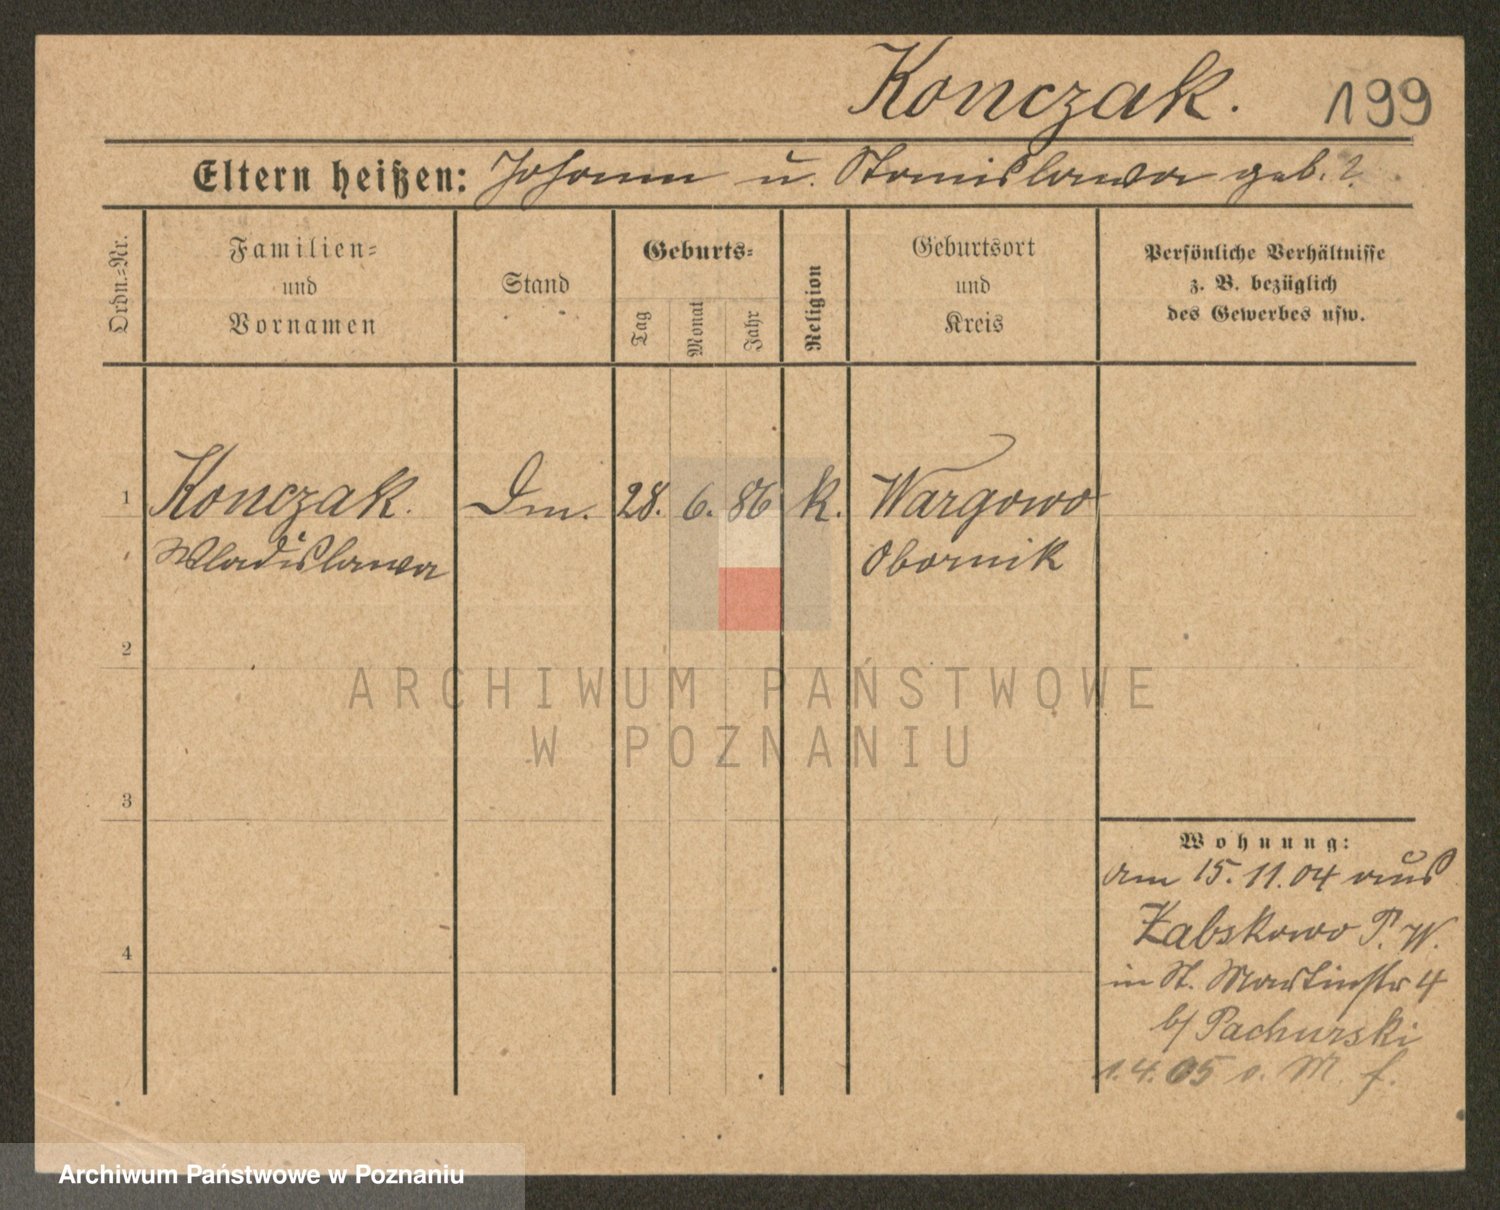 Konczak. 199
Eltern heißen: Johann u. Stanislawa geb. ?.
Ordn.=Nr.
Familien=
und
Vornamen
Stand
Geburts=
Tag
Monat
Jahr
Religion
Geburtsort
und
Kreis
Persönliche Verhältnisse
z. B. bezüglich
des Gewerbes usw.
1 Konczak. Dm. 28. 6. 86 k. Wargowo
Wladislawa Obornik
2
ARCHIWUM PAŃSTWOWE
W POZNANIU
3
Wohnung:
am 15.11.04 aus
Żabskowo P. W.
4
in St. Martinstr 4
b/ Pachurski
1.4.05 o. M. f.
Archiwum Państwowe w Poznaniu